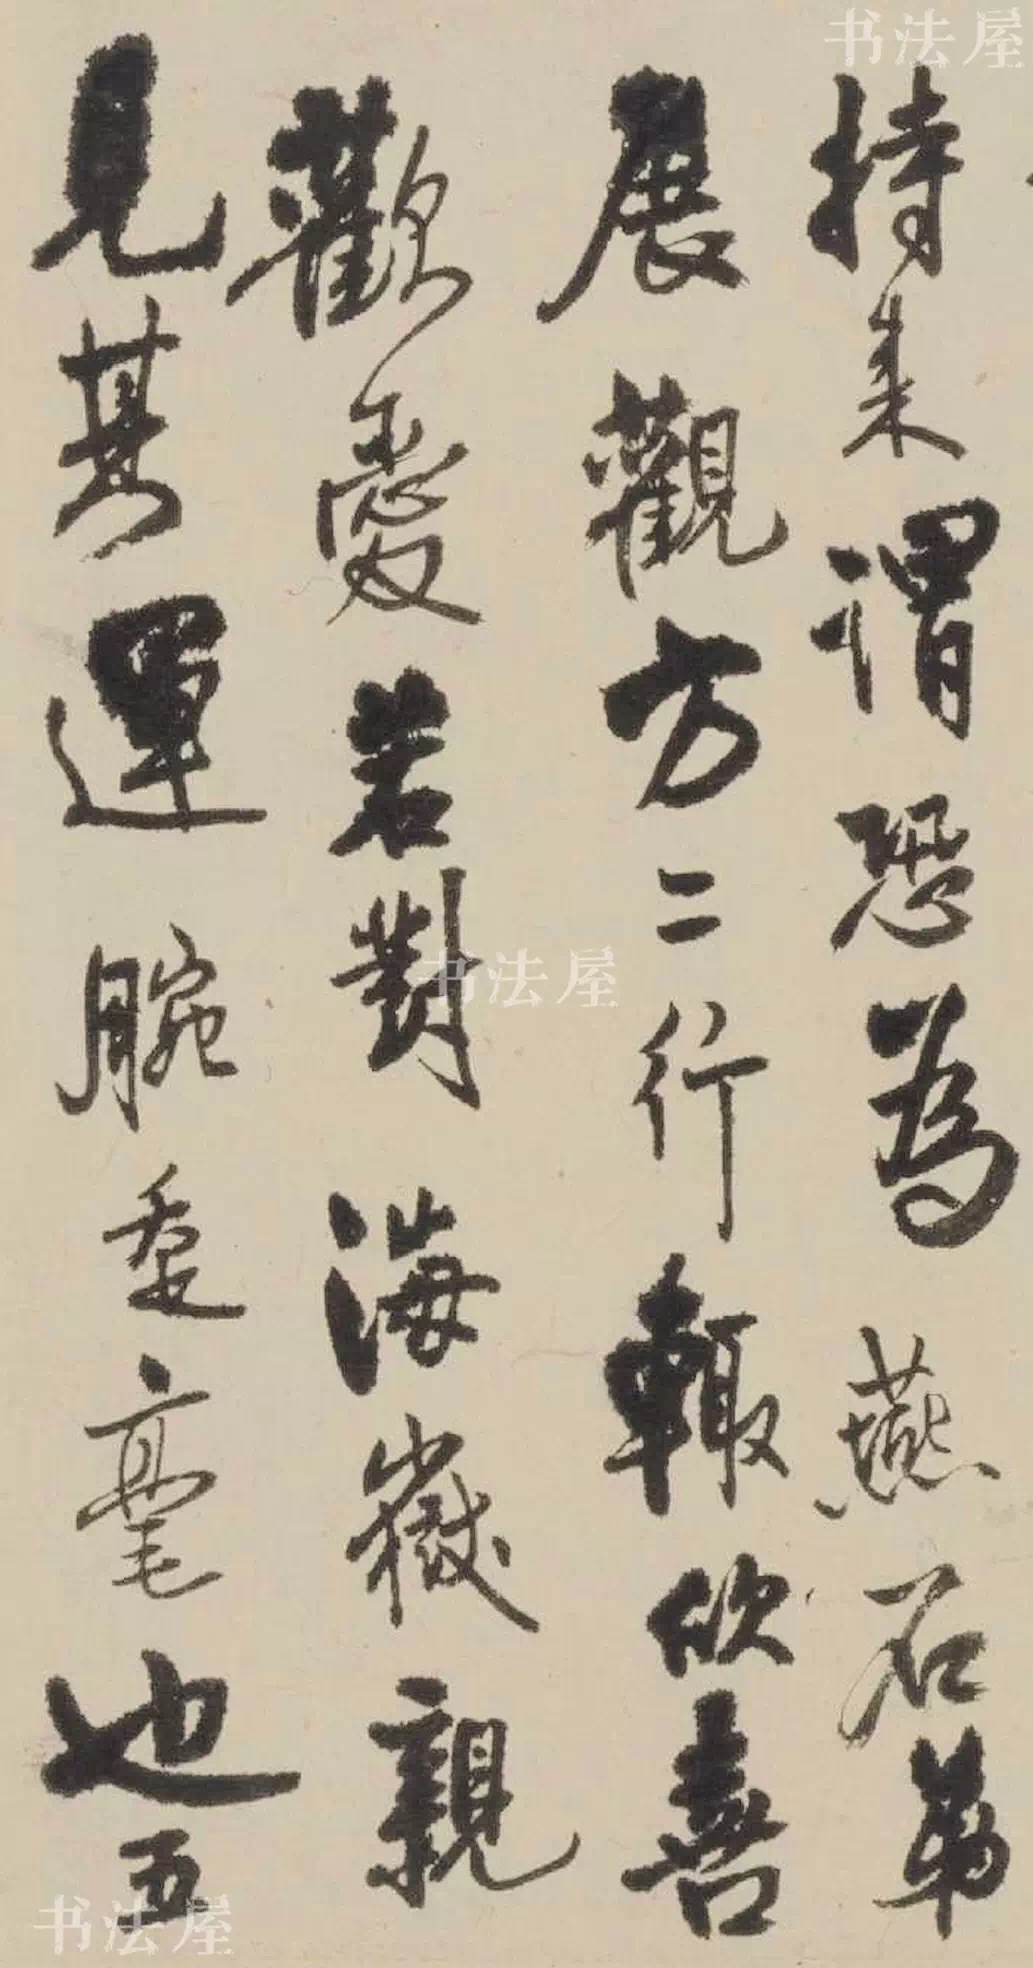 持来謂恐為燕石第
展觀方二行輙欣喜
歡愛若對海嶽親
見其運腕垂毫也五
书法屋
书法屋
书法屋